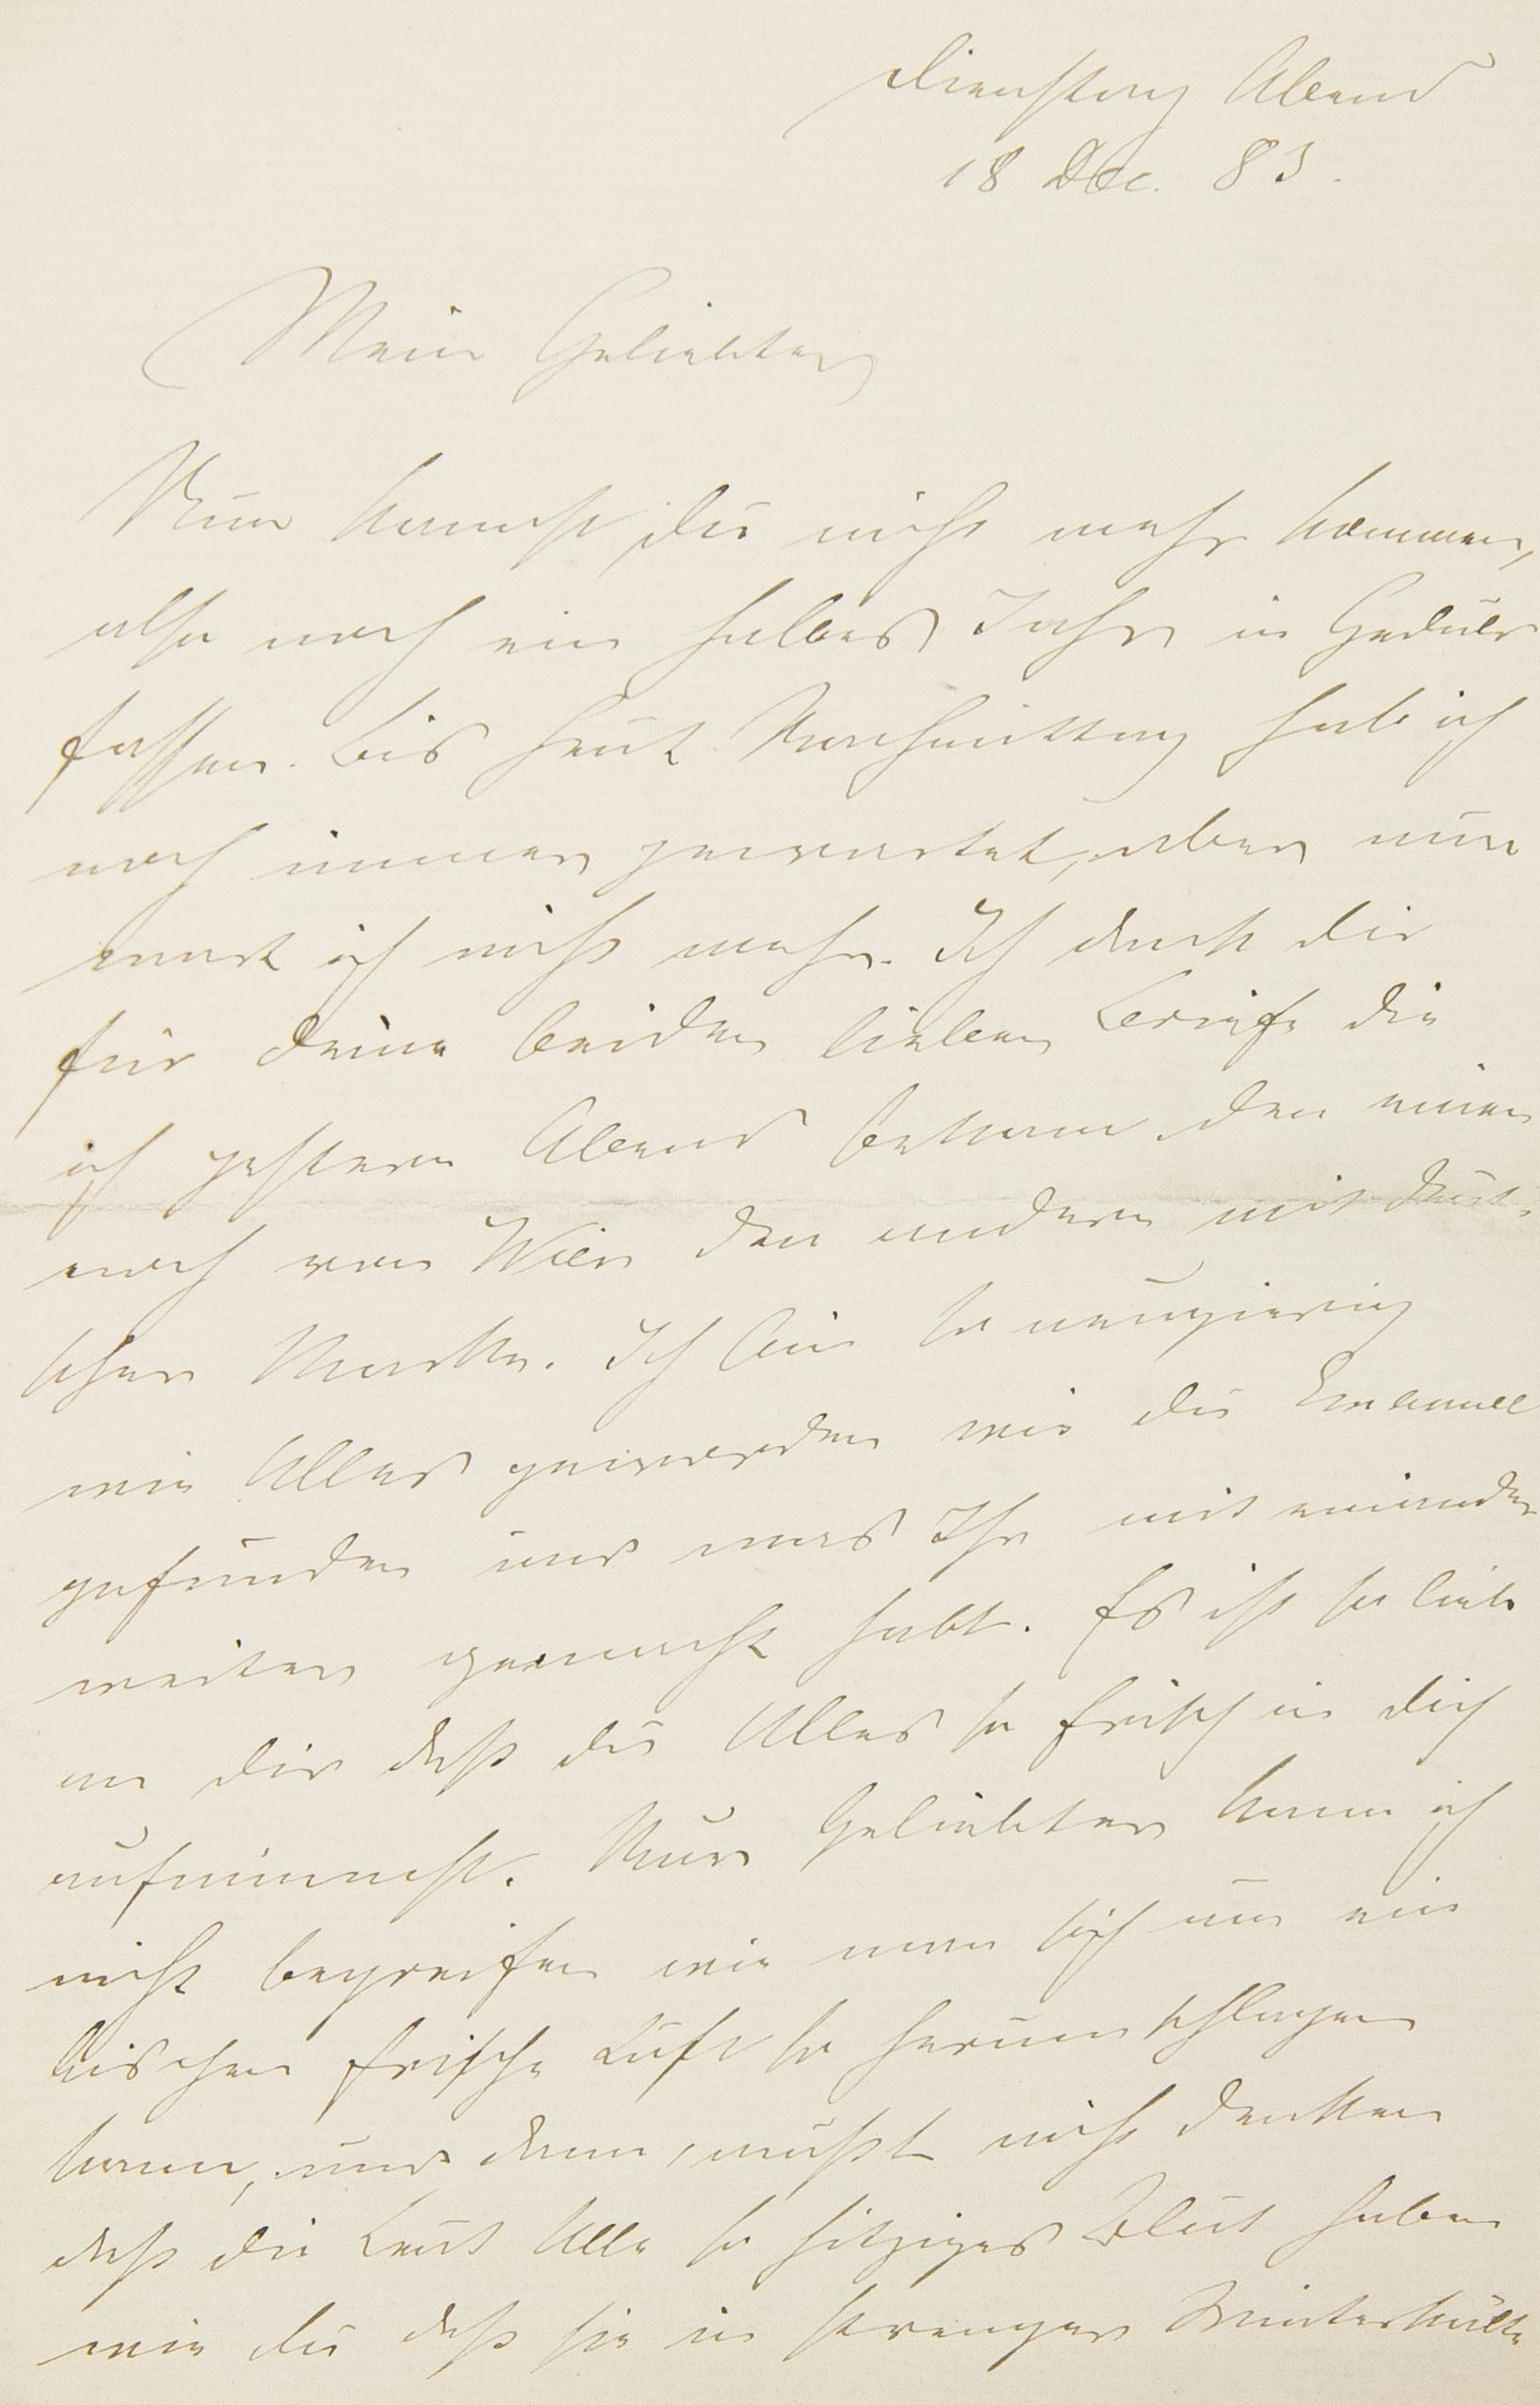 Dienstag Abend
18 Dec. 83.
Mein Geliebter
Nun kannst du nicht mehr kommen,
also noch ein halbes Jahr in Geduld
fassen. Bis heut Nachmittag hab ich
noch immer gewartet, aber nun
wart ich nicht mehr. Ich dank dir
für deine beiden lieben Briefe die
ich gestern Abend bekam den einen
noch von Wien den andern mit deut-
scher Marke. Ich bin so neugierig
wie Alles geworden wie du Emanuel
gefunden und was Ihr mit einander
weiter gemacht habt. Es ist so lieb
an dir daß du Alles so frisch in dich
aufnimmst. Nur Geliebter kann ich
nicht begreifen wie man sich um ein
bischen frische Luft so herumschlagen
kann, und dann, mußt nicht denken
daß die Leut Alle so hitziges Blut haben
wie du daß sie in strenger Winterkälte